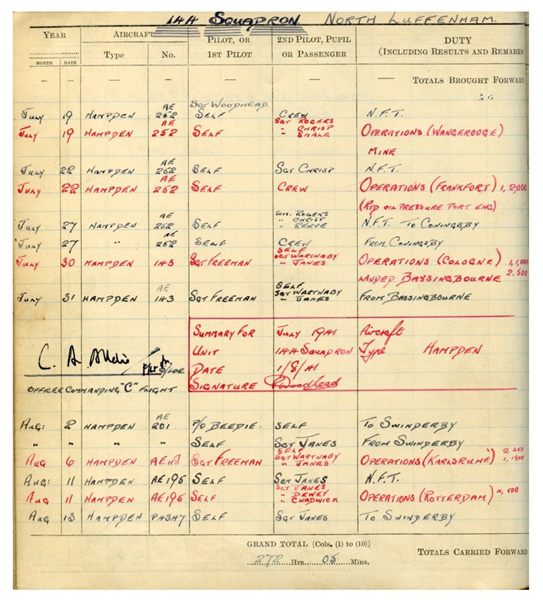 144 SQUADRON NORTH LUFFENHAM.
YEAR AIRCRAFT PILOT, OR 1ST PILOT 2ND PILOT, PUPIL OR PASSENGER DUTY (INCLUDING RESULTS AND REMARKS
MONTH DATE Type No.
— — — — — — — TOTALS BROUGHT FORWARD
SGT WOODHEAD
JULY 19 HAMPDEN AE 252 SELF CREW N.F.T.
JULY 19 HAMPDEN AE 252 SELF SGT ROGERS " CHRISP " SMALE OPERATIONS (WANGEROOGE)
MINE
JULY 22 HAMPDEN AE 252 SELF SGT CHRISP N.F.T.
JULY 22 HAMPDEN AE 252 SELF CREW OPERATIONS (FRANKFORT) 1, 2,000
(RTD OIL PRESSURE PORT ENG)
JULY 27 HAMPDEN AE 252 SELF ROGERS " CHRISP " REEVE N.F.T. TO CONINGSBY
JULY 27 " AE 252 SELF CREW FROM CONINGSBY
JULY 30 HAMPDEN 143 SGT FREEMAN SELF SGT WARTNABY " JANES OPERATIONS (COLOGNE) 1,1,000
LANDED BASSINGBOURNE 2.500
JULY 31 HAMPDEN AE 143 SGT FREEMAN SELF SGT WARTNABY " JANES FROM BASSINGBOURNE
SUMMARY FOR JULY 1941 Aircraft
UNIT 144 SQUADRON Type HAMPDEN
DATE 1/8/41
SIGNATURE
S/LDR.
OFFICER COMMANDING "C" FLIGHT
AUG: 2 HAMPDEN AE 201 P/O BEEDIE. SELF TO SWINDERBY
" " " SELF SGT JANES FROM SWINDERBY
AUG 6 HAMPDEN SGT FREEMAN SELF SGT WARTNABY " JANES OPERATIONS (KARLSRUHE)
AUG: 11 HAMPDEN AE195 SELF SGT JANES N.F.T.
AUG 11 HAMPDEN AE195 SELF SGT JANES " DEWEY " CHADWICK OPERATIONS (ROTTERDAM)
AUG 13 HAMPDEN SELF SGT JANES TO SWINDERBY
GRAND TOTAL [Cols. (1) to (10)]
272 Hrs. 05 Mins.
TOTALS CARRIED FORWARD